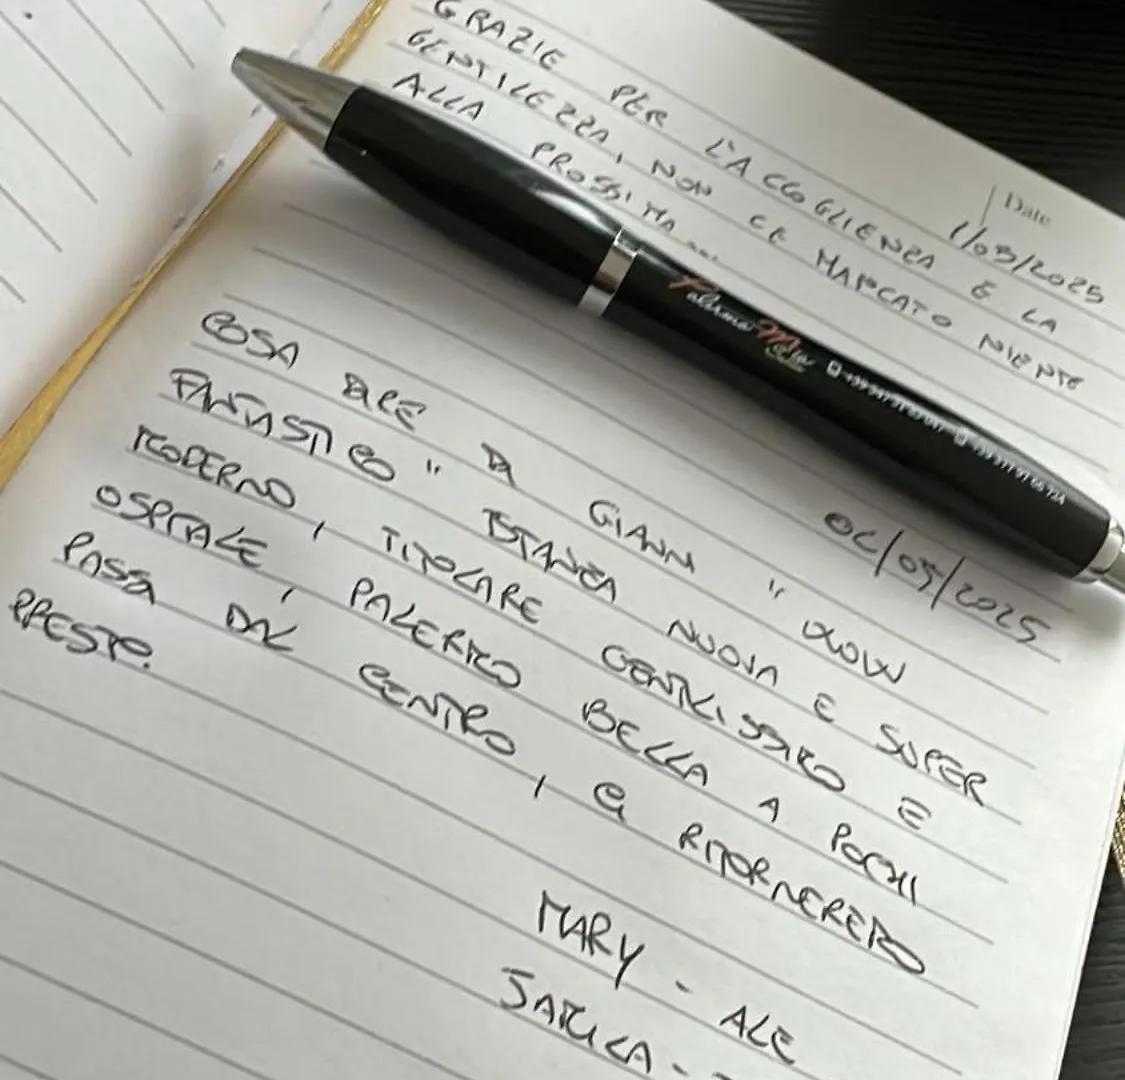 Date
1/05/2025
GRAZIE PER L'ACCOGLIENZA E LA
GENTILEZZA, NON CE MANCATO NIENTE
ALLA PROSSIMA ....
Palermo Mia
06/05/2025
COSA DIRE DA GIANNI "WOW
FANTASTICO" STANZA NUOVA E SUPER
MODERNO, TITOLARE GENTILISSIMO E
OSPITALE, PALERMO BELLA A POCHI
PASSI DAL CENTRO, CI RITORNEREMO
PRESTO.
MARY - ALE